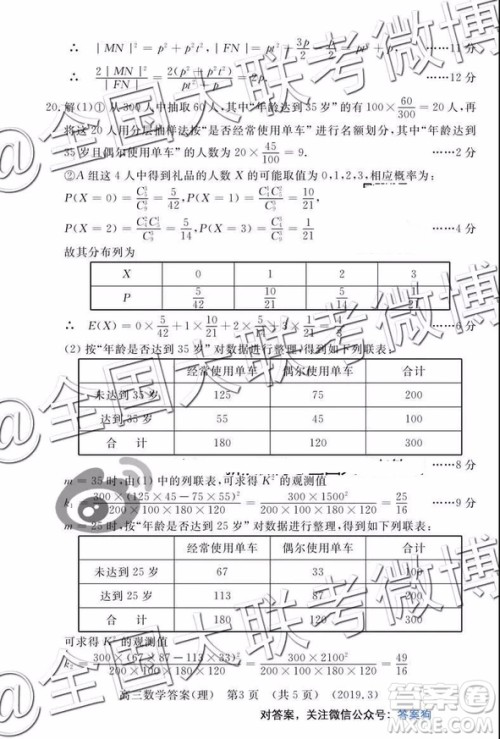 ∴ |MN|² = p² + p²t², |FN| = pt² + 3p/2 - p/2 = pt² + p. ……11分
∴ 2|MN|²/|FN| = 2(p² + p²t²)/(pt² + p) = 2p. ……12分
20. 解(1)①从300人中抽取60人,其中“年龄达到35岁”的有100×60/300=20人,再
将这20人用分层抽样法按“是否经常使用单车”进行名额划分,其中“年龄达到
35岁且偶尔使用单车”的人数为20×45/100=9. ……2分
②A组这4人中得到礼品的人数X的可能取值为0,1,2,3,相应概率为:
P(X=0)= =5/42, P(X=1)= =10/21,
P(X=2)= =5/14, P(X=3)= =1/21. ……4分
故其分布列为
X 0 1 2 3
P 5/42 10/21 5/14 1/21
∴ E(X)=0×5/42+1×10/21+2×5/14+3×1/21= ……6分
(2)按“年龄是否达到35岁”对数据进行整理,得到如下列联表:
经常使用单车 偶尔使用单车 合计
未达到35岁 125 75 200
达到35岁 55 45 100
合 计 180 120 300
……8分
m=35时,由(1)中的列联表,可求得K²的观测值
k₁=300×(125×45-75×55)²/200×100×180×120=300×1500²/200×100×180×120=25/16 ……9分
m=25时,按“年龄是否达到25岁”对数据进行整理,得到如下列联表:
经常使用单车 偶尔使用单车 合计
未达到25岁 67 33 100
达到25岁 113 87 200
合 计 180 120 300
可求得K²的观测值
k₂=300×(67×87-113×33)²/200×100×180×120=300×2100²/200×100×180×120=49/16
高三数学答案(理) 第3页 (共5页) (2019.3)
对答案,关注微信公众号:答案狗
@全国大联考微博
@全国大联考微博